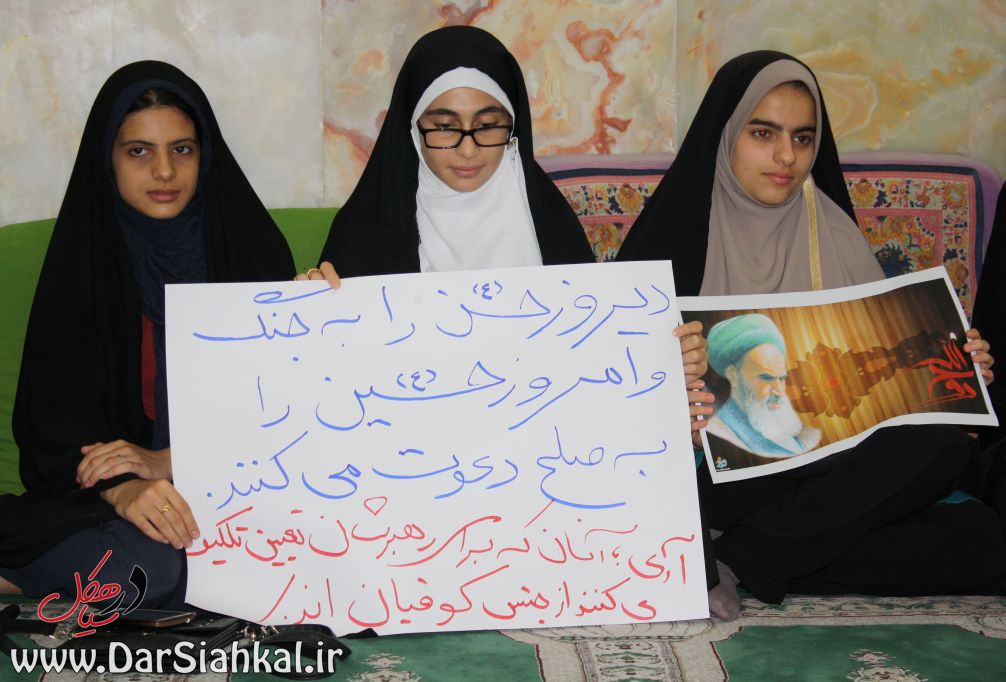 دیروز حسن (ع) را به جنگ
و امروز حسین (ع) را
به صلح دعوت می کنند.
آری؛ آنان که برای رهبرشان تعیین تکلیف
می کنند از جنس کوفیان اند.
روح الله
در سیاهکل
www.DarSiahkal.ir